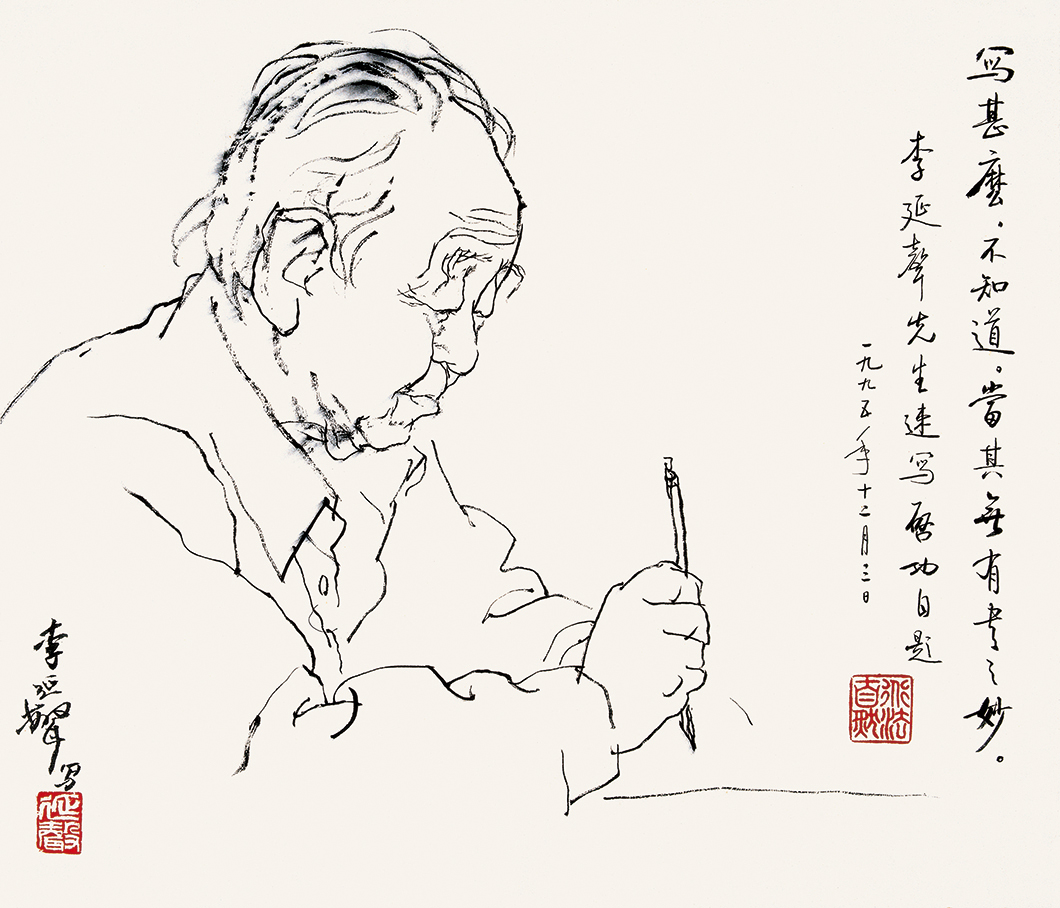 写甚麽，不知道。當其無有書之妙。
李延聲先生速写啓功自題
一九九五年十二月三日
李延聲写
延聲